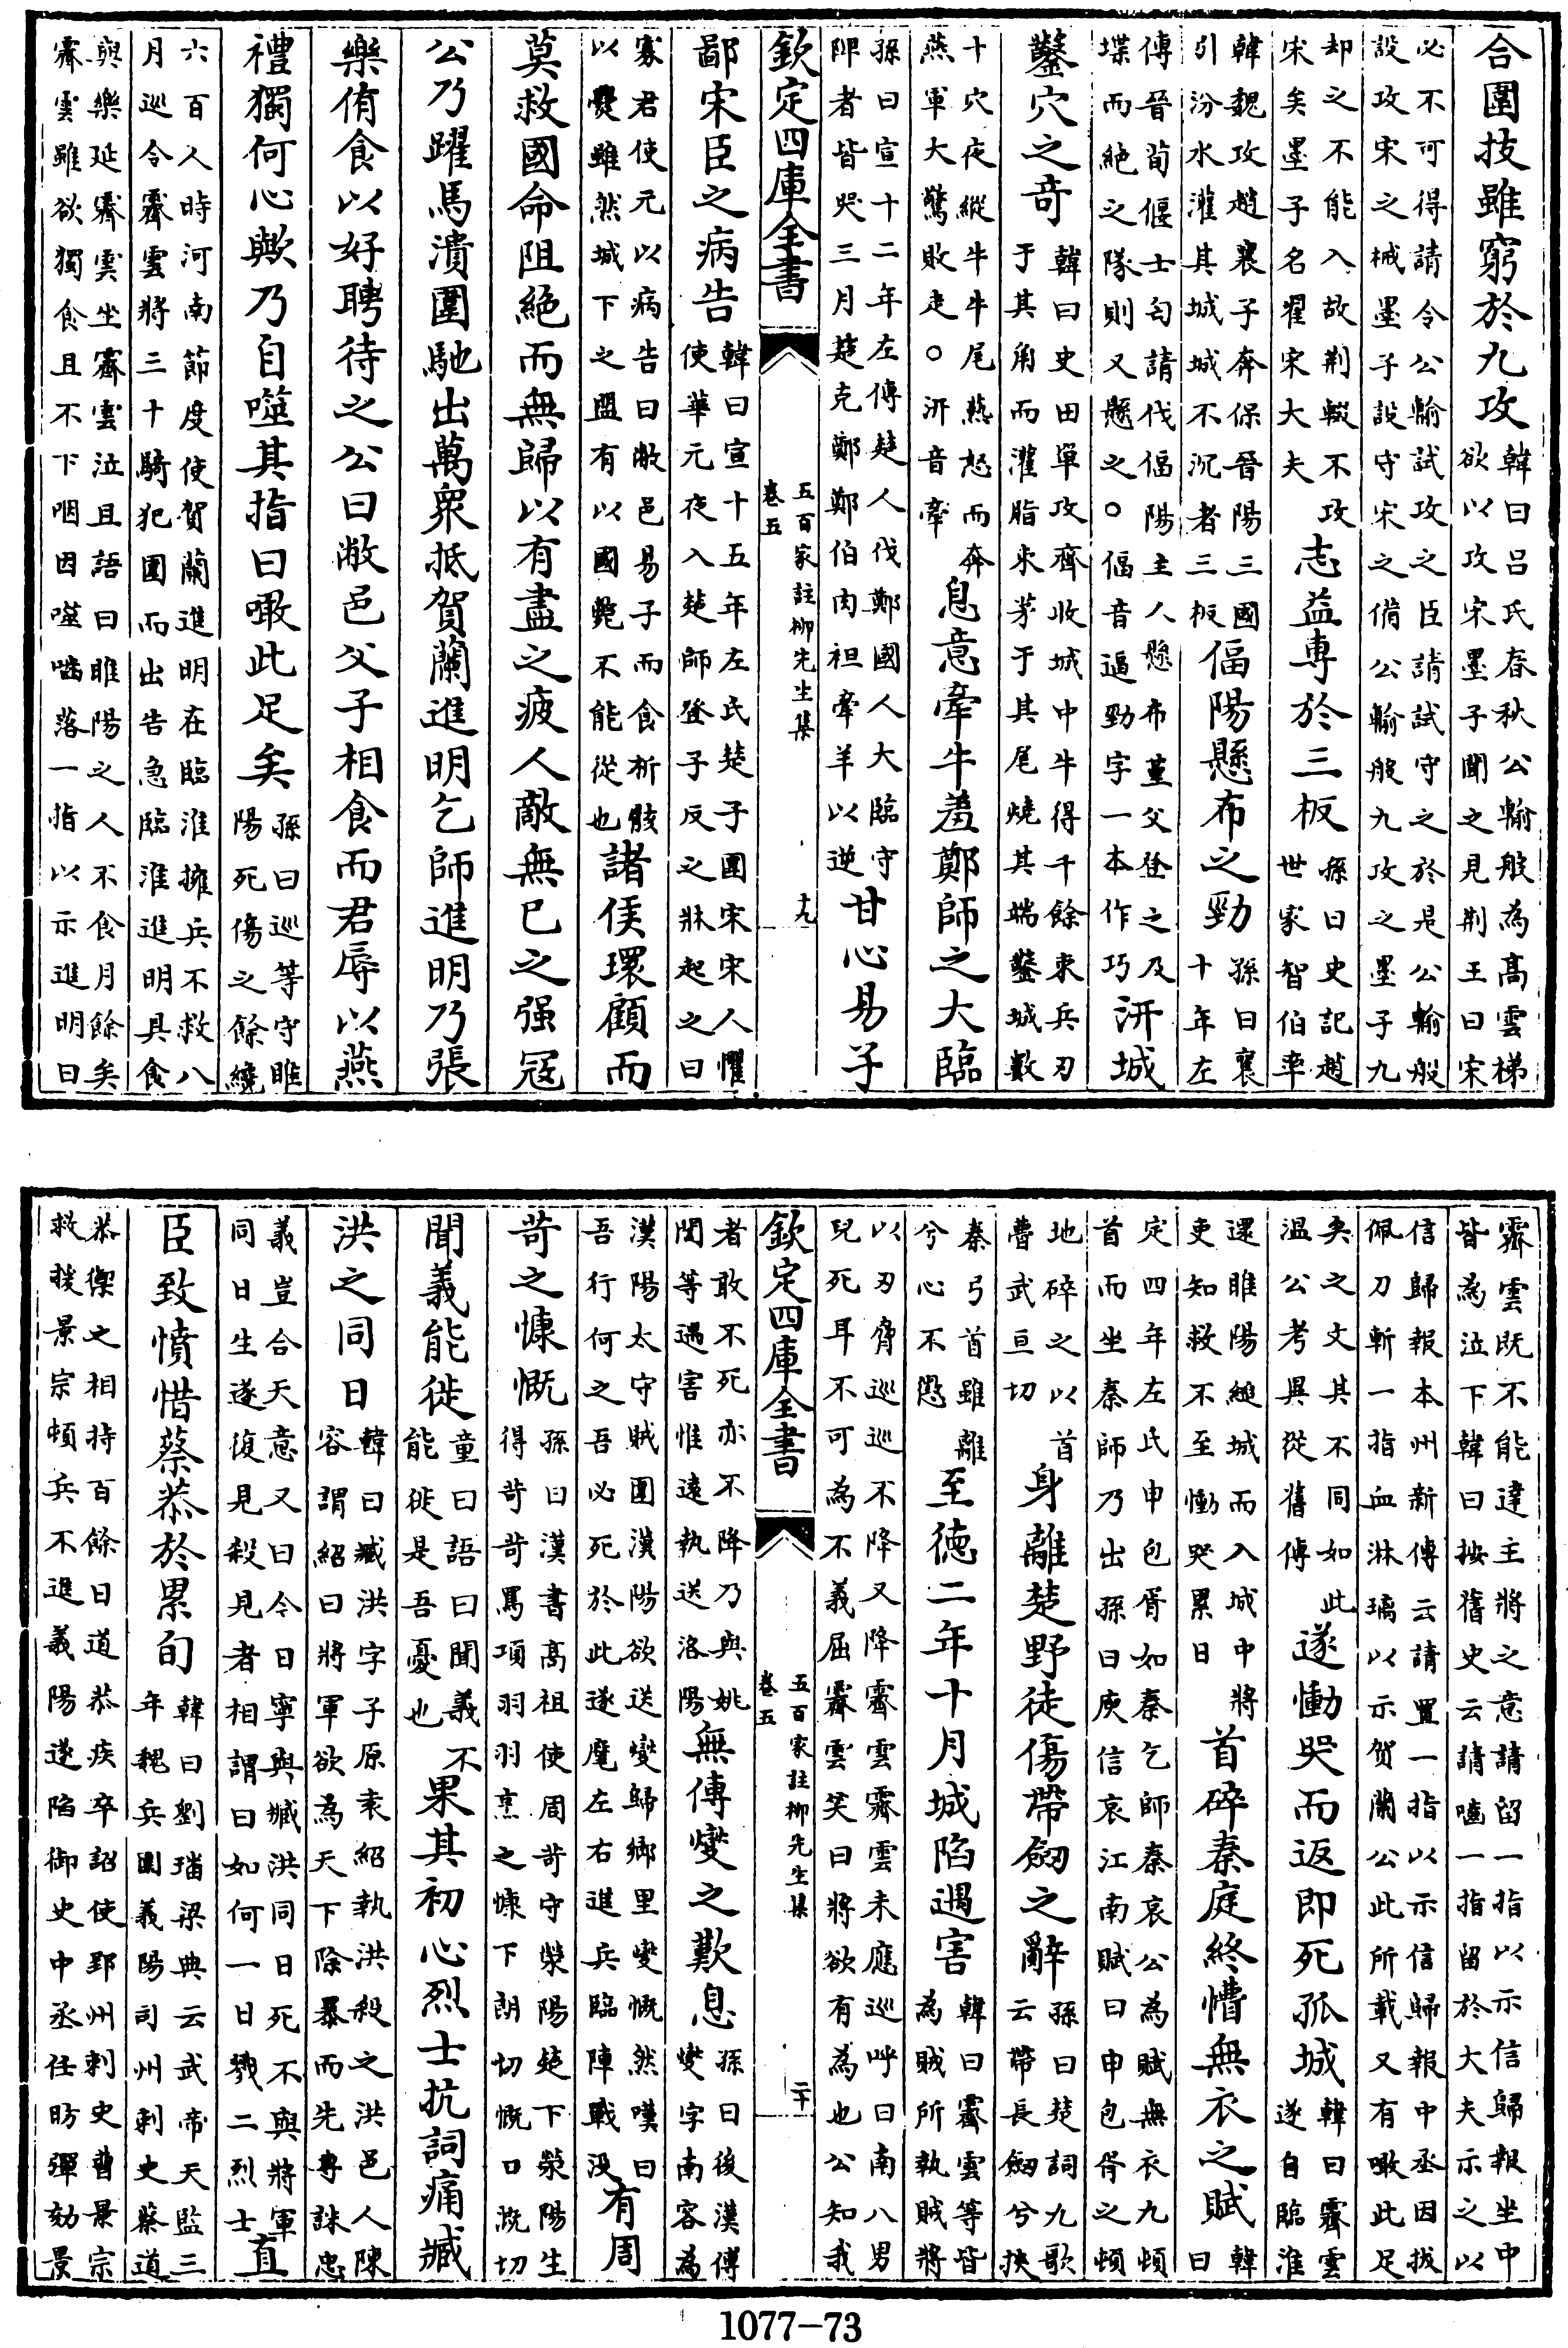 合圍技雖窮於九攻韓曰吕氏春秋公輸般為髙雲梯欲以攻宋墨子聞之見荆王曰宋
必不可得請令公輸試攻之臣請試守之於是公輸般設攻宋之械墨子設守宋之備公輸般九攻之墨子九
却之不能入故荆輟不攻宋矣墨子名翟宋大夫志益專於三板孫曰史記趙世家智伯率
韓魏攻趙襄子奔保晉陽三國引汾水灌其城城不沉者三板偪陽懸布之勁孫曰襄十年左
傳晉荀偃士匄請伐偪陽主人懸布堇父登之及堞而絶之隊則又懸之○偪音逼勁字一本作巧汧城
鑿穴之奇韓曰史田單攻齊收城中牛得千餘束兵刃于其角而灌脂束茅于其尾燒其端鑿城數
十穴夜縱牛牛尾熱怒而奔燕軍大驚敗走○汧音牽息意牽牛羞鄭師之大臨
孫曰宣十二年左傳楚人伐鄭國人大臨守陴者皆哭三月楚克鄭鄭伯肉袒牽羊以逆甘心易子
欽定四庫全書 五百家註柳先生集 卷五 十九
鄙宋臣之病告韓曰宣十五年左氏楚子圍宋宋人懼使華元夜入楚師登子反之牀起之曰
寡君使元以病告曰敝邑易子而食析骸以㸑雖然城下之盟有以國斃不能從也諸侯環顧而
莫救國命阻絶而無歸以有盡之疲人敵無已之强冦
公乃躍馬潰圍馳出萬衆抵賀蘭進明乞師進明乃張
樂侑食以好聘待之公曰敝邑父子相食而君辱以燕
禮獨何心歟乃自噬其指曰噉此足矣孫曰巡等守睢陽死傷之餘纔
六百人時河南節度使賀蘭進明在臨淮擁兵不救八月巡令霽雲將三十騎犯圍而出告急臨淮進明具食
與樂延霽雲坐霽雲泣且語曰睢陽之人不食月餘矣霽雲雖欲獨食且不下咽因噬嚙落一指以示進明曰
霽雲既不能達主將之意請留一指以示信歸報坐中皆為泣下韓曰按舊史云請嚙一指留於大夫示之以
信歸報本州新傳云請置一指以示信歸報中丞因拔佩刀斬一指血淋璃以示賀蘭公此所載又有噉此足
矣之文其不同如此温公考異從舊傳遂慟哭而返即死孤城韓曰霽雲遂自臨淮
還睢陽縋城而入城中將吏知救不至慟哭累日首碎秦庭終懵無衣之賦韓曰
定四年左氏申包胥如秦乞師秦哀公為賦無衣九頓首而坐秦師乃出孫曰庾信哀江南賦曰申包胥之頓
地碎之以首瞢武亘切身離楚野徒傷帶劒之辭孫曰楚詞九歌云帶長劒兮挾
秦弓首雖離兮心不懲至徳二年十月城陷遇害韓曰霽雲等皆為賊所執賊將
以刃脅巡巡不降又降霽雲霽雲未應巡呼曰南八男兒死耳不可為不義屈霽雲笑曰將欲有為也公知我
欽定四庫全書 五百家註柳先生集 卷五 二十
者敢不死亦不降乃與姚誾等遇害惟遠執送洛陽無傅燮之歎息孫曰後漢傅燮字南容為
漢陽太守賊圍漢陽欲送燮歸鄉里燮慨然嘆曰吾行何之吾必死於此遂麾左右進兵臨陣戰没有周
苛之慷慨孫曰漢書髙祖使周苛守滎陽楚下滎陽生得苛苛罵項羽羽烹之慷下朗切慨口漑切
聞義能徙童曰語曰聞義不能徙是吾憂也果其初心烈士抗詞痛臧
洪之同日韓曰臧洪字子原袁紹執洪殺之洪邑人陳容謂紹曰將軍欲為天下除暴而先專誅忠
義豈合天意又曰今日寧與臧洪同日死不與將軍同日生遂復見殺見者相謂曰如何一日戮二烈士直
臣致憤惜蔡恭於累旬韓曰劉璠梁典云武帝天監三年魏兵圍義陽司州刺史蔡道
恭禦之相持百餘日道恭疾卒詔使郢州刺史曹景宗救援景宗頓兵不進義陽遂陷御史中丞任昉彈劾景
1077-73